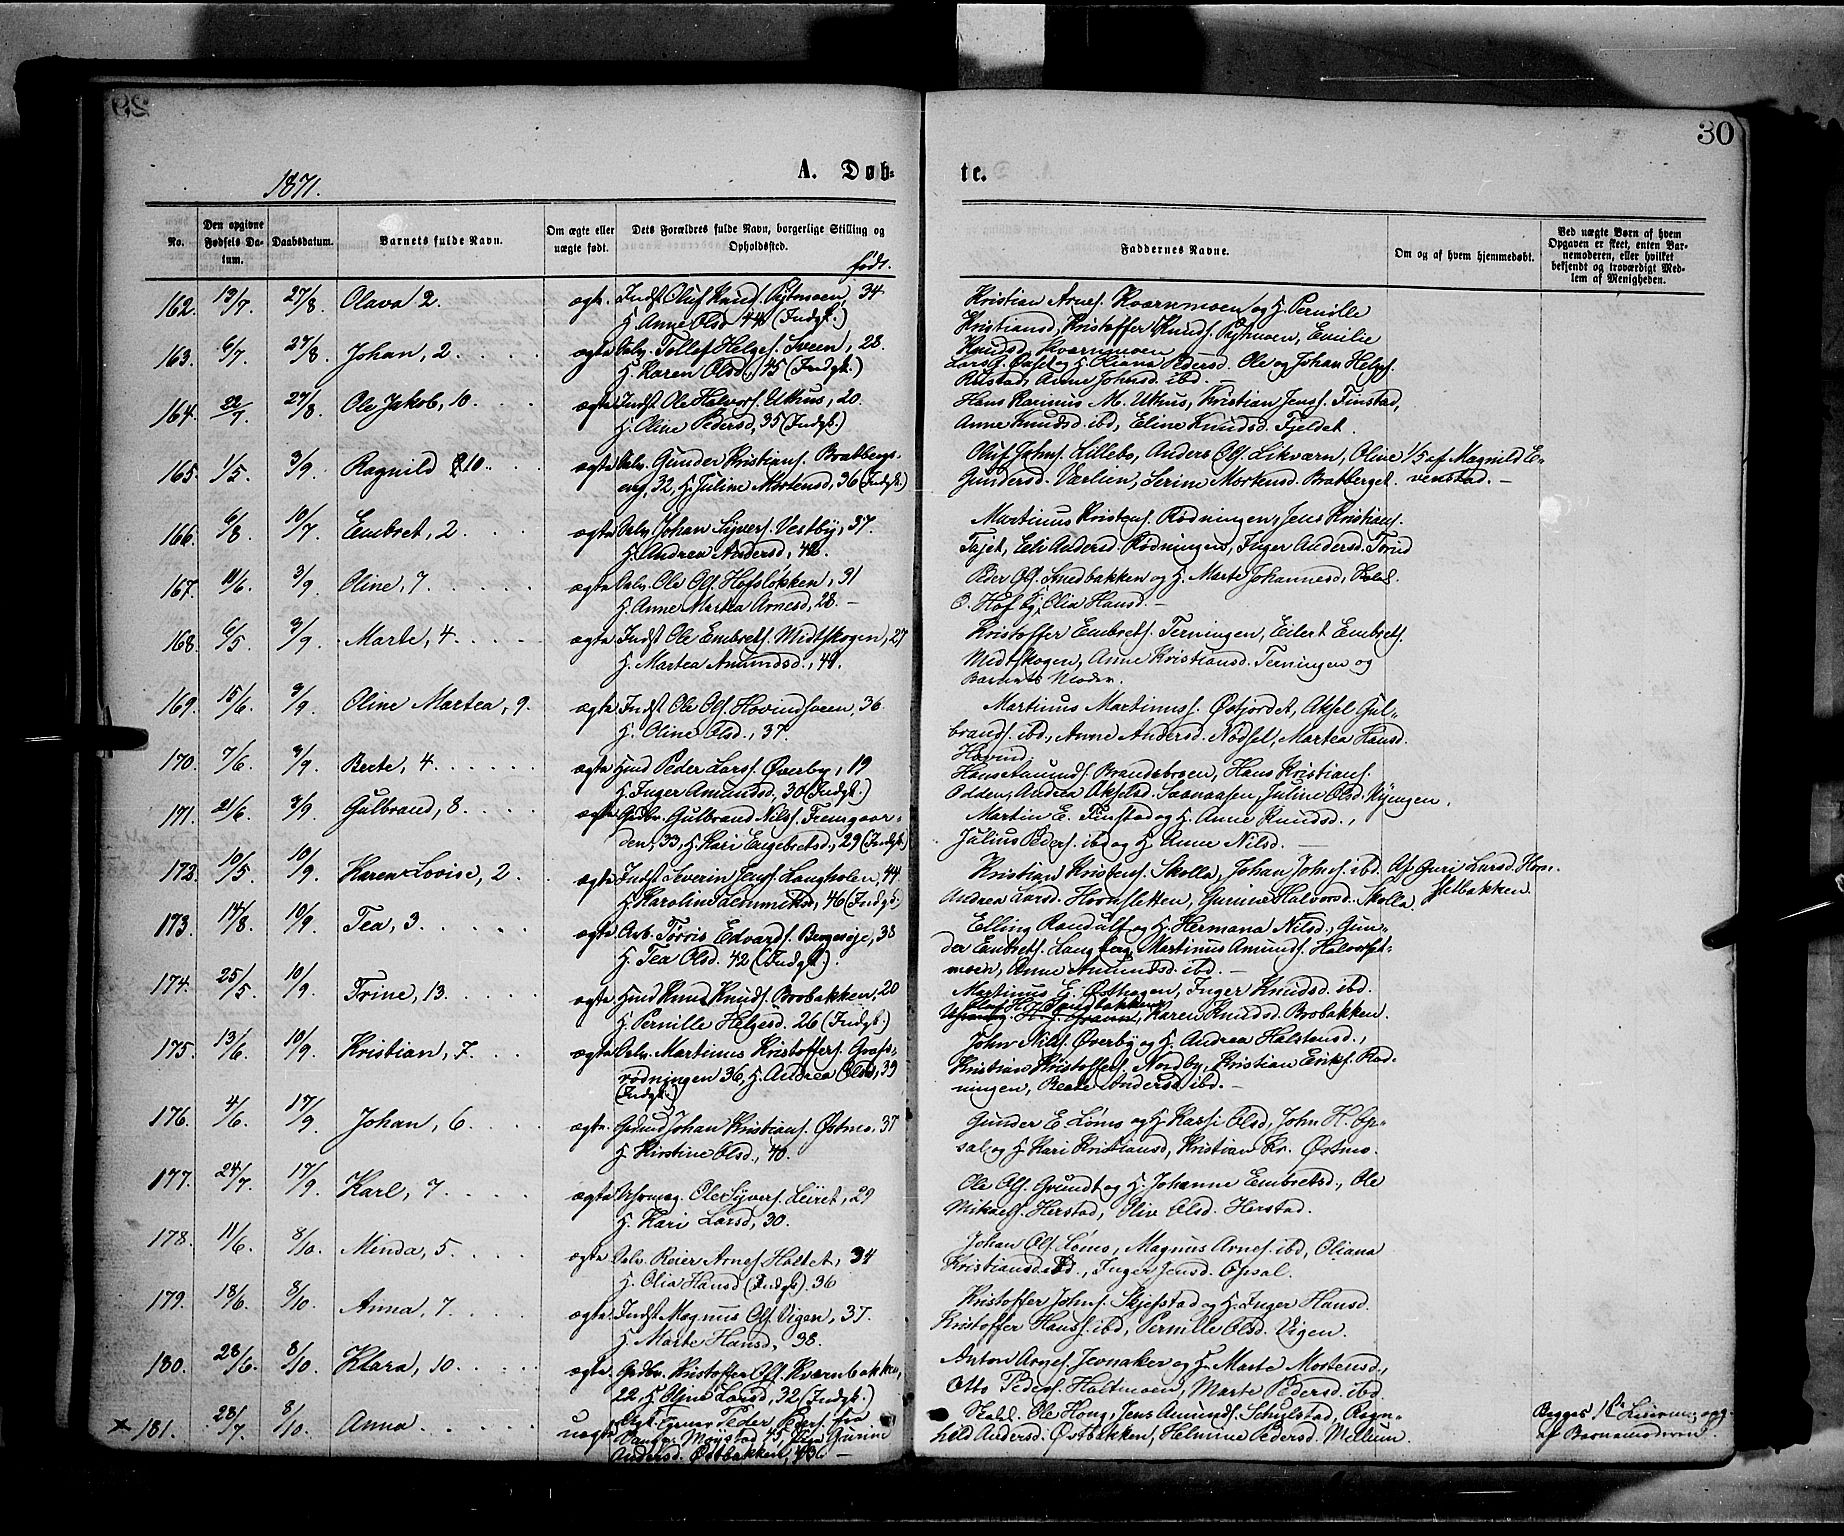 30
1871.
A. Døb-
te.
No.
Den opgivne Fødsels Da-tum.
Daabsdatum.
Barnets fulde Navn.
Om ægte eller uægte født.
Dets Forældres fulde Navn, borgerlige Stilling og Opholdssted.
født.
Faddernes Navne.
Om og af hvem hjemmedøbt.
Ved uægte Børn af hvem Opgaven er skeet, enten Bar-nemoderen, eller hvilket bekjendt og troværdigt Med-lem af Menigheden.
162. 13/7 27/8 Olava 2. ægte. Indst Oluf Knuds. Rytmoen, 34
H. Anne Olsd 44 (Indgb.)
Kristian Arnes. Kvarnmoen og H. Pernille
Kristiansd, Kristoffer Knuds. Rytmoen, Emilie
Knudsd Kvarnmoen
163. 6/7 27/8 Johan, 2 ægte Selv. Tollef Helges. Sveen, 28.
H. Karen Olsd, 45 (Indgb.)
Lars G. Opset og H. Oliana Pedersd. Ole og Johan Helges.
Rilstad, Anne Johnsd. ibd. —
164. 22/7 27/8 Ole Jakob, 10. ægte Indst Ole Halvors. Ukhus, 20.
H. Oline Pedersd, 35 (Indgb.)
Hans Rasmus M. Ukhus, Kristian Jens. Finstad,
Anne Knudsd ibd, Eline Knudsd. Fjeldet.
165. 1/5 3/9 Ragnild 10 ægte Selv. Gunder Kristians. Bratbergs-
eng, 32, H. Juline Mortensd, 36 (Indgb.)
Oluf Johns. Lillebo, Anders Ols. Likvarn, Oline
Gundersd. Værlien, Serine Mortensd. Bratberget.
1/5 af Magnild E-
venstad. —
166. 6/8 10/7 Embret, 2 ægte Selv. Johan Syvers. Vestby, 37.
H. Andrea Andersd, 42.
Martinus Kristens. Rødningen, Jens Kristians.
Tajet, Eli Andersd. Rødningen, Inger Andersd.
167. 11/6 3/9 Oline, 7 ægte Selv. Ole Ols. Hofsløkken, 31
H. Anne Martea Arnesd, 28. —
Peder Ols. Snedbakken og H. Marte Johannesd,
O. Hofby, Olia Hansd. —
168. 6/5 3/9 Marte, 4. ægte Indst Ole Embrets. Medtskogen, 27
H. Martea Amundsd., 49.
Kristoffer Embrets. Terningen, Eilert Embrets.
Medtskogen, Anne Kristiansd. Terningen og
Barnets Moder.
169. 15/6 3/9 Oline Martea, 9. ægte Indst Ole Ols. Hovindsveen, 36.
H. Oline Olsd., 37.
Martinus Martinuss. Østfjordet, Aksel Gul-
brands. ibd, Anne Andersd. Nødset, Martea Hansd.
Hovind
170. 7/6 3/9 Beete, 4. ægte Hmd Peder Larss. Øverby, 19
H. Inger Amundsd., 30 (Indgb.)
Hans Amunds. Brandsbroen, Hans Kristians.
Odden, Andrea Akselsd. Saanaasen, Juline Olsd. Nyingen.
171. 21/6 3/9 Gulbrand, 8. ægte Gedbr. Gulbrand Nilss. Fremgaar-
den, 33, H. Kari Engebretsd., 29 (Indgb)
Martin E. Finstad og H. Anne Knudsd.,
Julius Peders. ibd og H. Anne Nilsd. —
172. 10/5 10/9 Karen Lovise, 2. ægte Indst Severin Jens. Langholen, 44.
H. Karoline, 46 (Indgb.)
Kristian Kristens. Skolla, Johan Johns. ibd.
Andrea Larsd. Hornsletten, Gurine Halvorsd. Skolla.
Af Guri Larsd. Horn-
sletbakken.
173. 14/8 10/9 Tea, 3. ægte Arb. Tørris Edvards. Bergesøie, 38
H. Tea Olsd. 42 (Indgb.).
Elling Randulf og H. Hermana Nilsd., Gun-
der Embrets. Langberg, Martinus Amunds. Halvorsts-
moen, Anne Amundsd. ibd. —
174. 25/5 10/9 Trine, 13. ægte Hmd Knud Knuds. Brobakken, 20
H. Pernille Helgesd. 26 (Indgb.)
Martinus E. Østhagen, Inger Knudsd. ibd.
Karen Knudsd. Brobakken.
175. 13/6 10/9 Kristian, 7. ægte Selv. Martinus Kristoffers. Grafs-
rødningen 36, H. Andrea Olsd, 39
(Indgb.)
John Nils. Øverby og H. Andrea Halstensd.,
Kristian Kristoffers. Nordby, Kristian Eriks. Rød-
ningen, Beate Andersd. ibd. —
176. 4/6 17/9 Johan, 6 ægte. Johan Kristians. Østmo. 37
H. Kirstine Olsd., 40.
Gunder E. Løms og H. Karsi Olsd, John H. Op-
sal og H. Kari Kristiansd, Kristian Kr. Østmo.
177. 24/7 17/9 Karl, 7. ægte Uhrmag. Ole Syvers. Leiret, 29
H. Kari Larsd, 30.
Ole Ols. Grundt og H. Johanne Embretsd., Ole
Mikaels. Herstad, Oliv Olsd. Herstad.
178. 11/6 8/10 Minda, 5. ægte Selv. Reier Arnes. Holtet, 34
H. Olia Hansd (Indgb). 36
Johan Ols. Lømo, Magnus Arnes. ibd, Oliana
Kristiansd. ibd., Inger Jensd. Opsal.
179. 18/6 8/10. Anna, 7. ægte Indst Magnus Ols. Vigen, 37.
H. Marte Hansd, 38.
Kristoffer Johns. Skjefstad og H. Inger Hansd.
Kristoffer Hanss. ibd, Pernille Olsd. Vigen.
180. 28/6. 8/10. Klara, 10. ægte. Gedbr. Kristoffer Ols. Kværnbakken,
22 H. Oline Larsd, 32 (Indgb.)
Anton Arnes. Jevnaker og H. Marte Mortensd.,
Otto Peders. Holtmoen, Marte Pedersd. ibd.
× 181. 28/7 8/10. Anna uægte Peder Peders. fra
Vang, Møystad 45, Pige Gurine
Andersd. Østbakken, 36 —
Ole Hong, Jens Amunds. Schulstad, Ragn-
hild Andersd. Østbakken, Helmine Pedersd. Mellum.
Begges 1ste
af Barnemoderen.